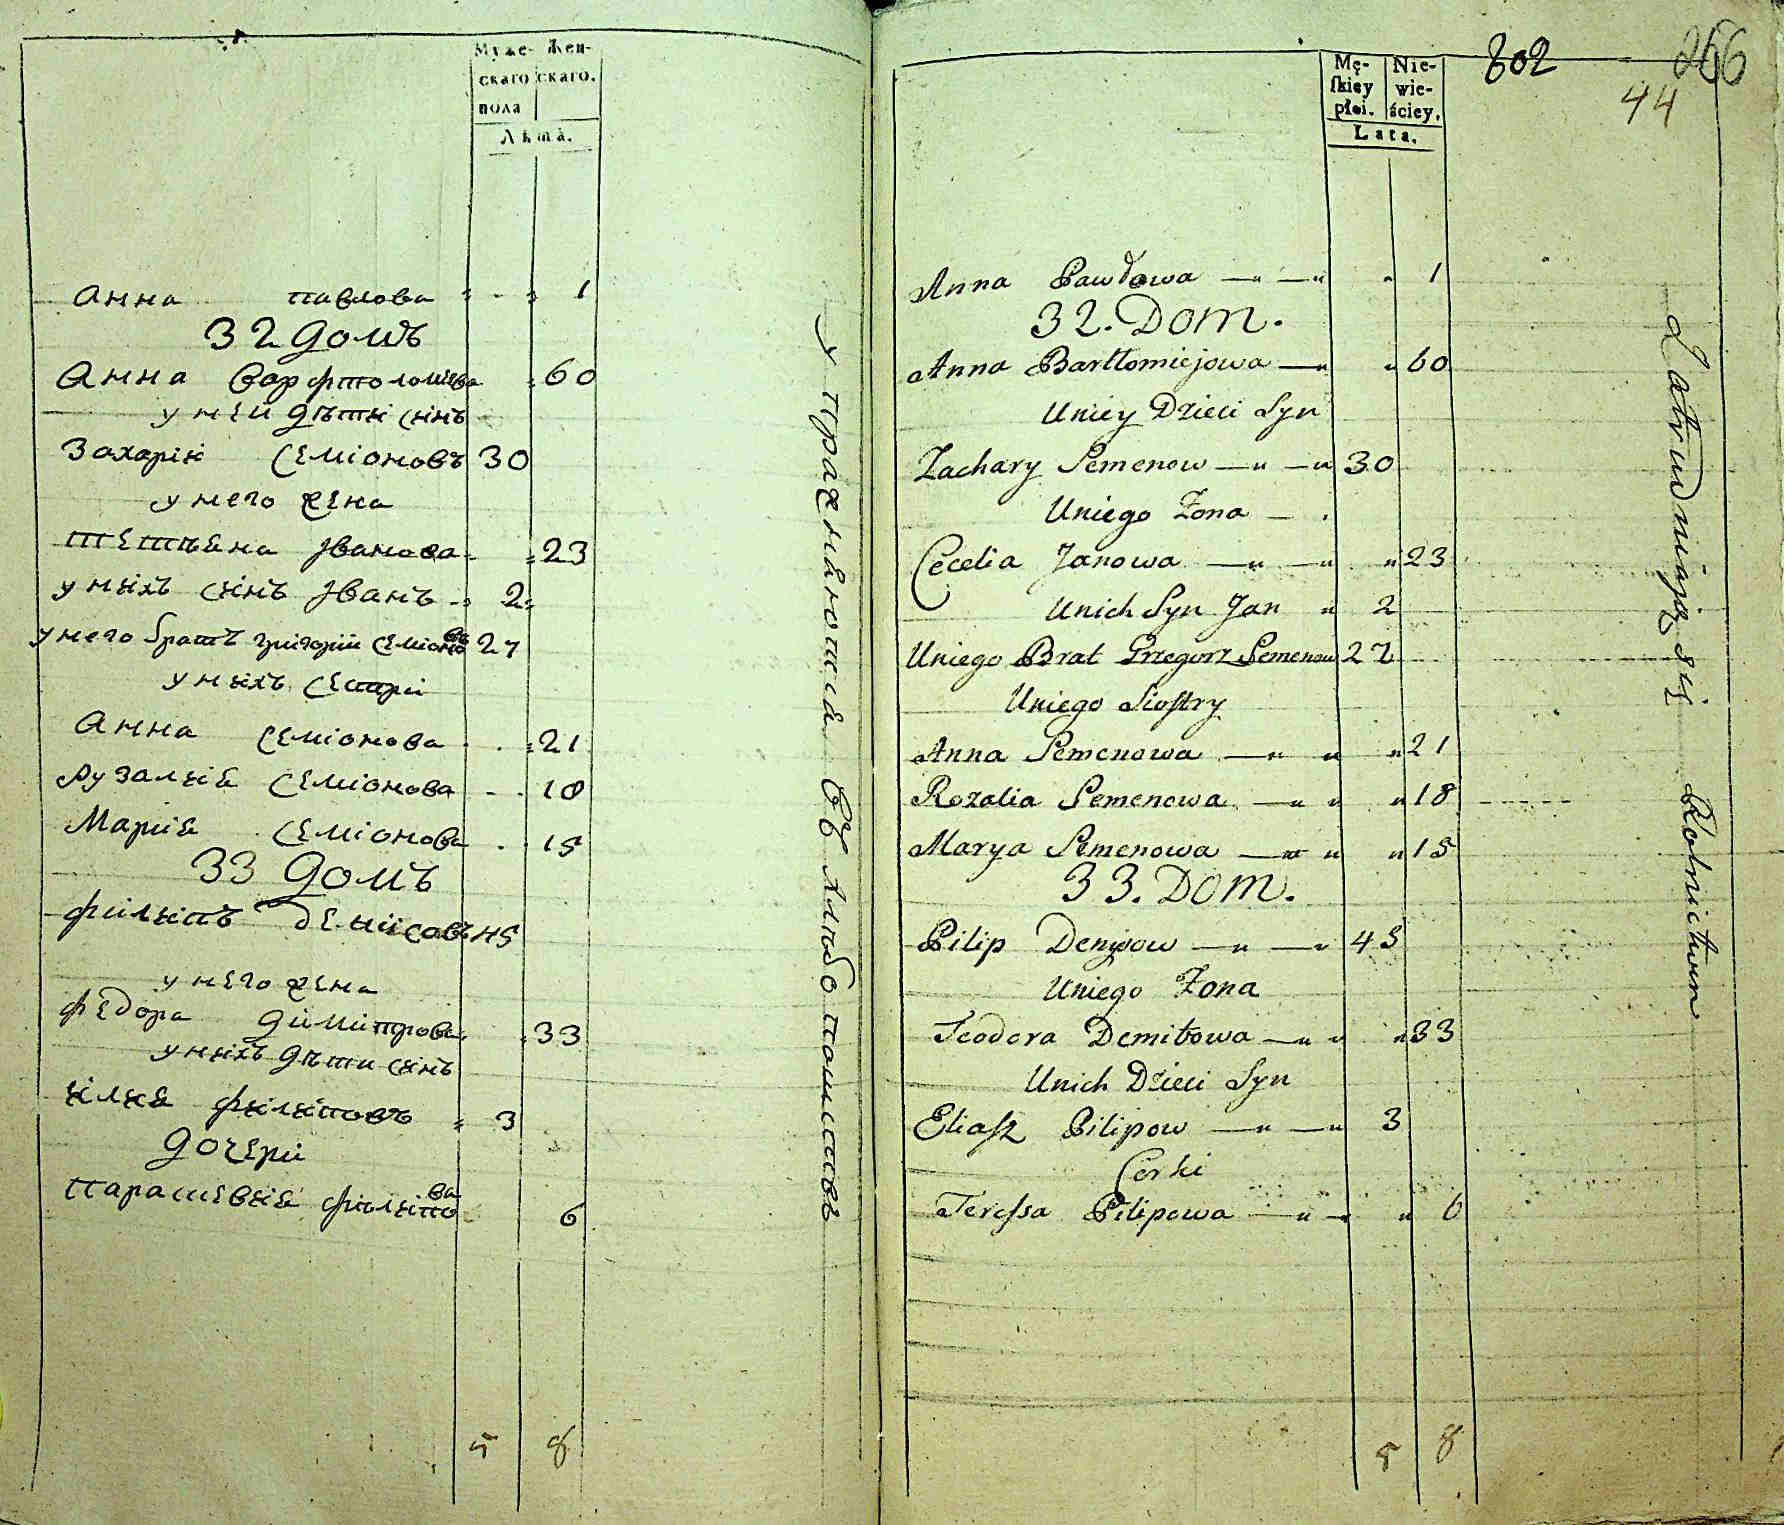 Муже- Жен-
скаго скаго.
пола
Лѣта.
Анна павлова 1
32 домъ
Анна Варфтоломѣева 60
у неи дѣти синъ
Захарій Семіоновъ 30
у него жена
Тетѣяна Іванова 23
у нихъ синъ Іванъ 2
у него братъ григорій Семіонов 27
у нихъ сестри
Анна Семіонова 21
Рузалия Семіонова 18
Мария Семіонова 15
33 домъ
филипъ денисовъ 45
у него жена
федора димитрова 33
у нихъ дѣти синъ
илия филиповъ 3
дочери
парасшевия филипова 6
5 8
упражняются въ хлѣбопашествѣ
802
266
44
Mę- Nie-
skiey wie-
płci. ściey.
Lata.
Anna Pawłowa 1
32. Dom.
Anna Bartłomiejowa 60
Uniey Dzieci Syn
Zachary Semenow 30
Uniego Żona
Cecelia Janowa 23
Unich Syn Jan 2
Uniego Brat Grzegorz Semenow 27
Uniego Siostry
Anna Semenowa 21
Rozalia Semenowa 18
Marya Semenowa 15
33. Dom.
Pilip Denysow 45
Uniego Żona
Teodora Demitowa 33
Unich Dzieci Syn
Eliasz Pilipow 3
Corki
Teressa Pilipowa 6
5 8
Zatrudniają się Rolnictwem